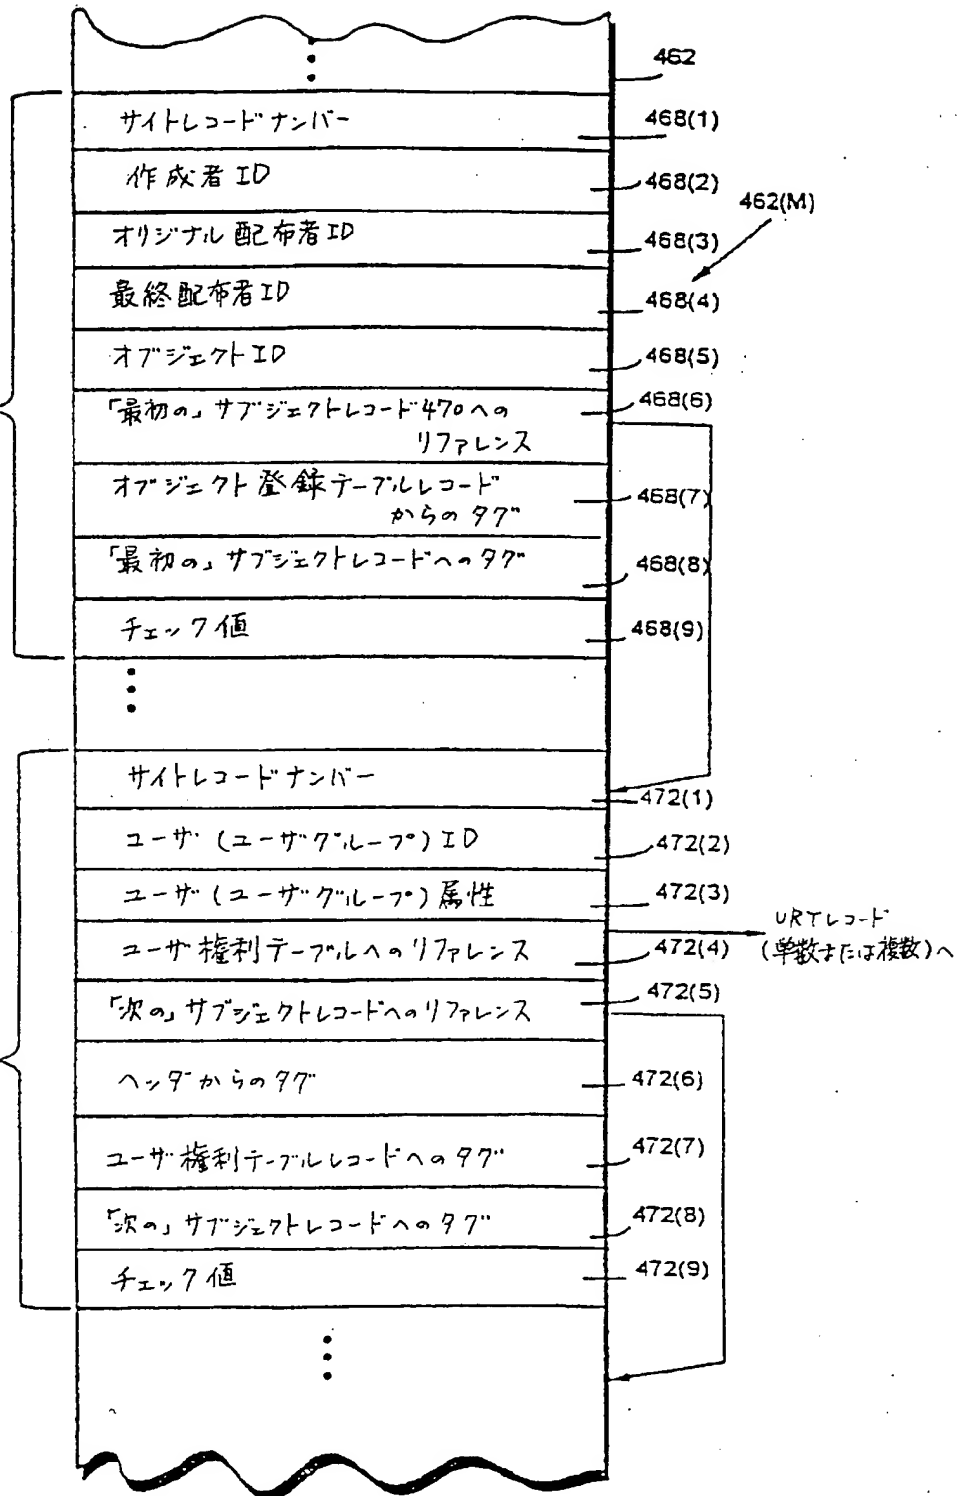 462
サイトレコードナンバー
468(1)
作成者ID
468(2)
462(M)
オリジナル配布者ID
468(3)
最終配布者ID
468(4)
オブジェクトID
468(5)
「最初の」サブジェクトレコード470への
リファレンス
468(6)
オブジェクト登録テーブルレコード
からのタグ
468(7)
「最初の」サブジェクトレコードへのタグ
468(8)
チェック値
468(9)
サイトレコードナンバー
472(1)
ユーザ(ユーザグループ)ID
472(2)
ユーザ(ユーザグループ)属性
472(3)
ユーザ権利テーブルへのリファレンス
472(4)
URTレコード
(単数または複数)へ
「次の」サブジェクトレコードへのリファレンス
472(5)
ヘッダからのタグ
472(6)
ユーザ権利テーブルレコードへのタグ
472(7)
「次の」サブジェクトレコードへのタグ
472(8)
チェック値
472(9)